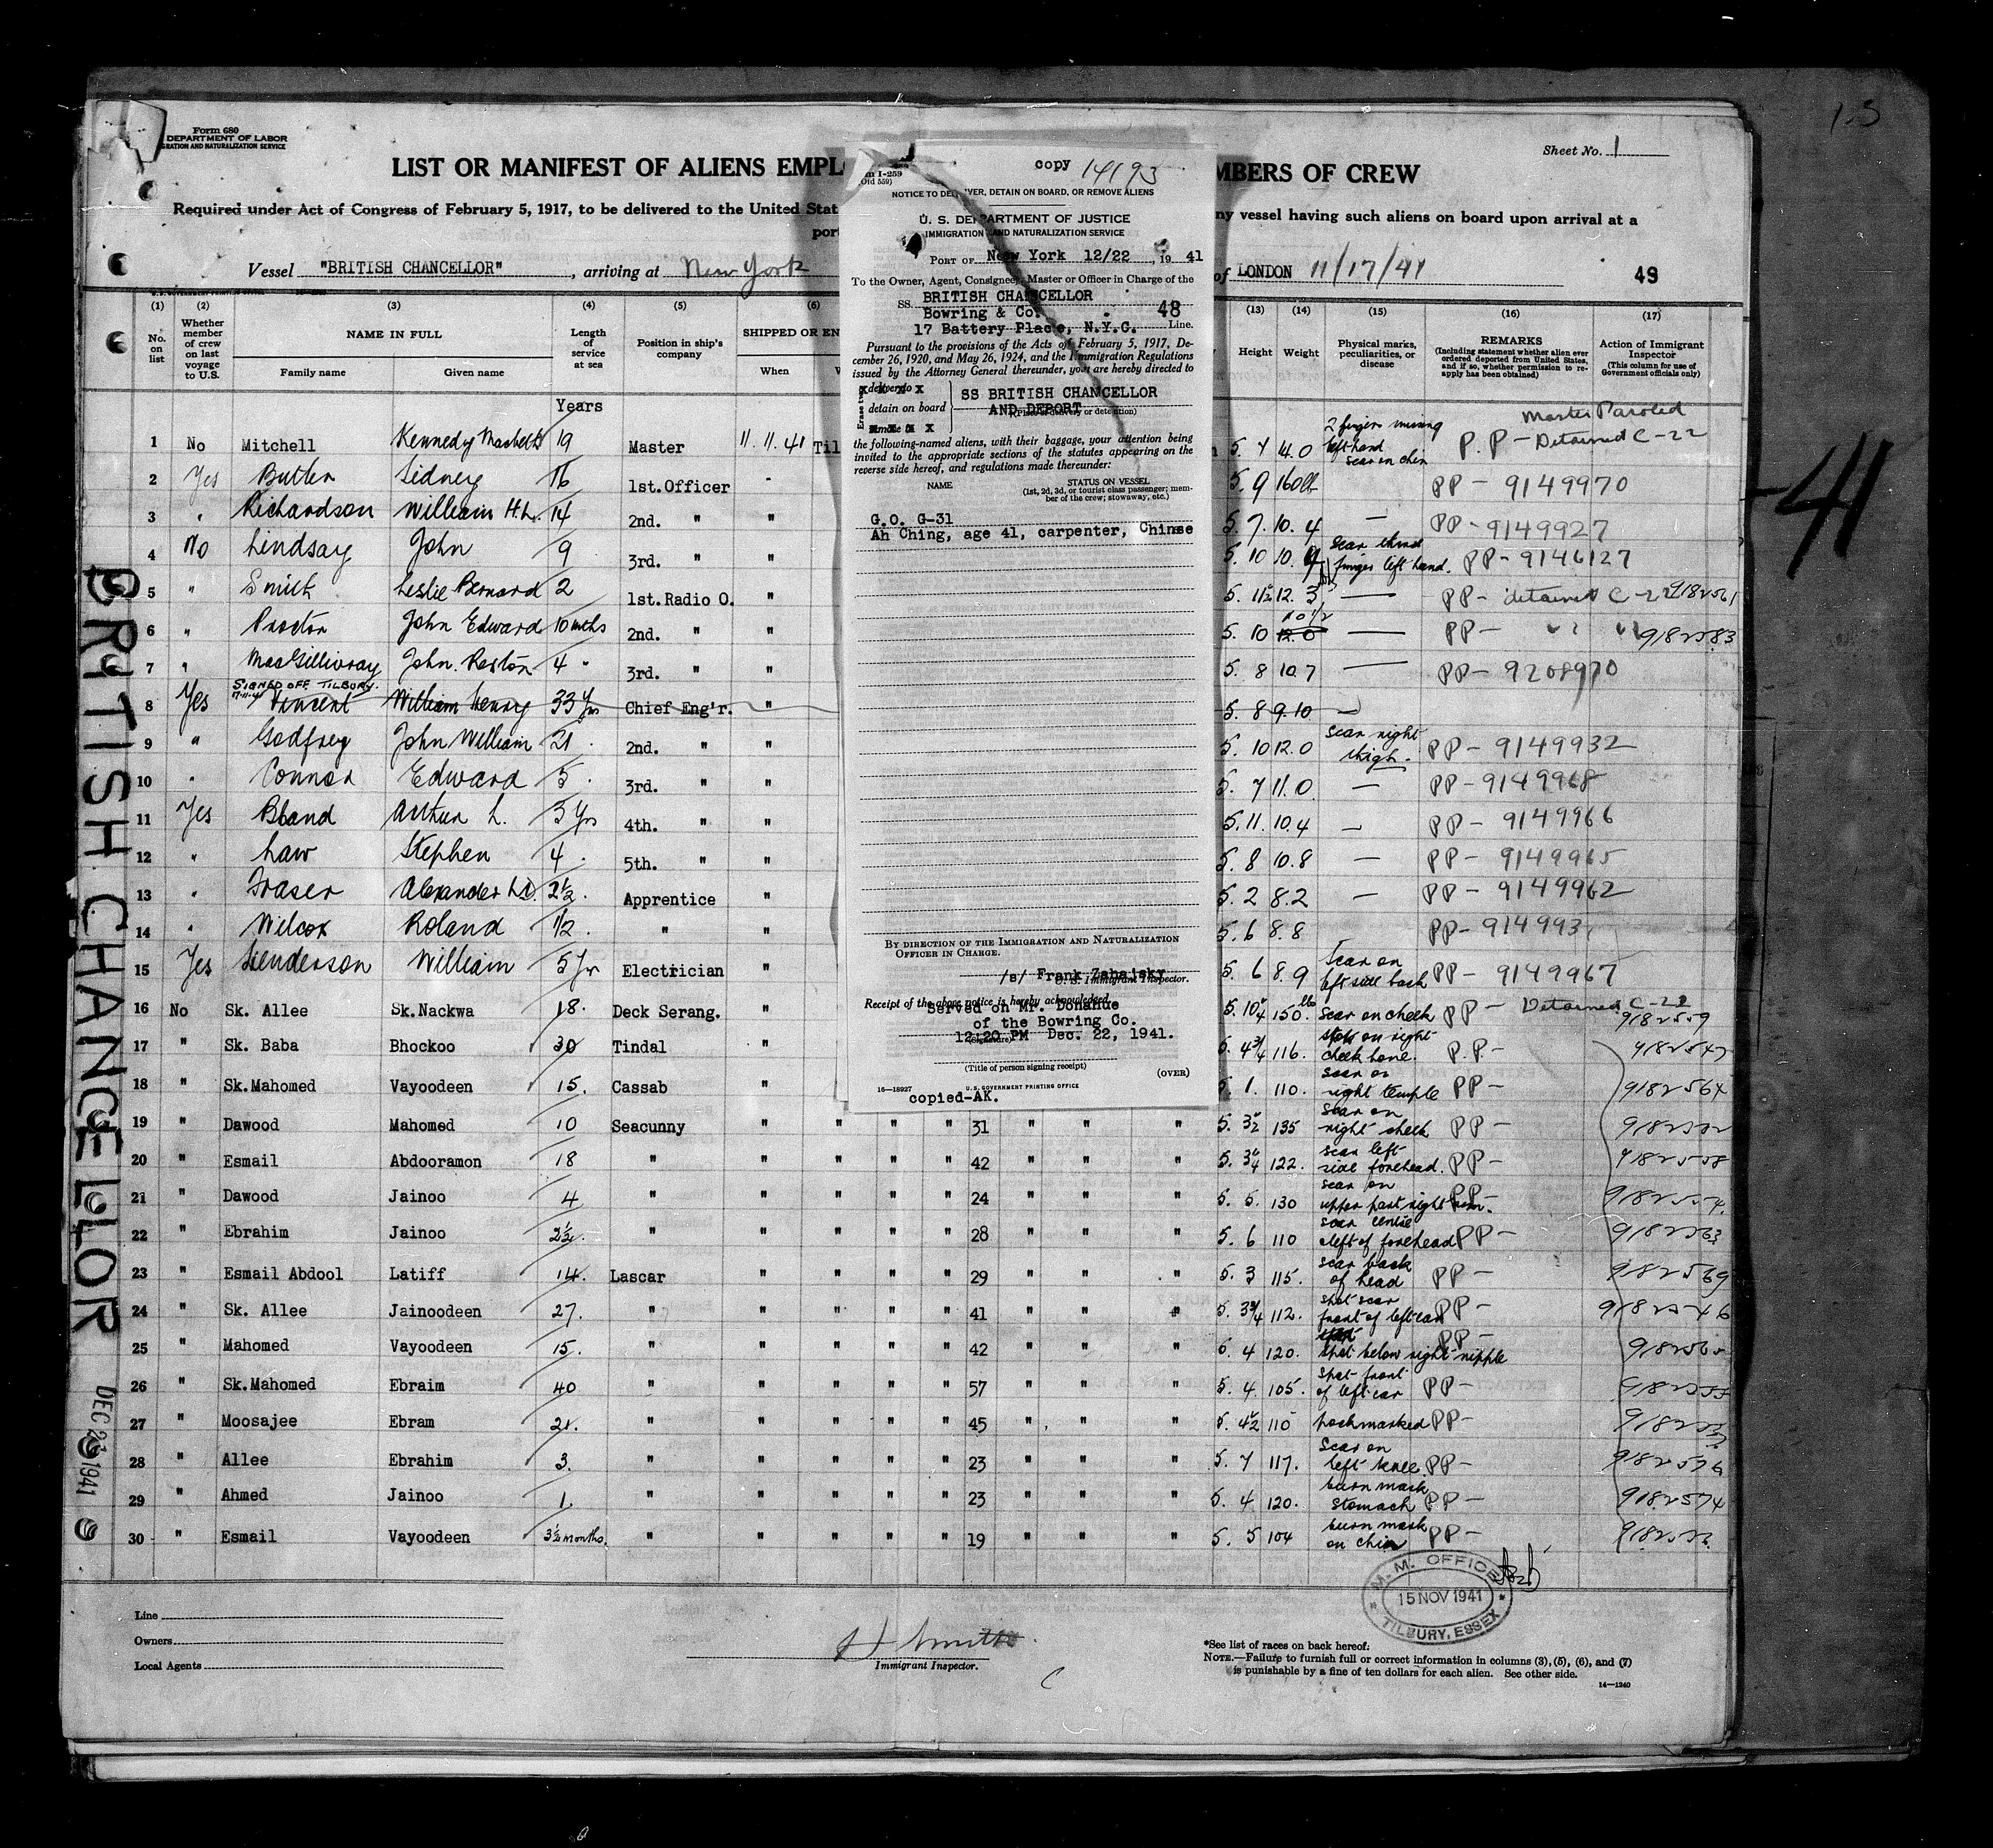 1.3
Form 680
DEPARTMENT OF LABOR
GRATION AND NATURALIZATION SERVICE
Sheet No. 1
LIST OR MANIFEST OF ALIENS EMPL
MBERS OF CREW
Required under Act of Congress of February 5, 1917, to be delivered to the United Stat
ny vessel having such aliens on board upon arrival at a
port
Vessel "BRITISH CHANCELLOR", arriving at New York
of LONDON 11/17/41 49
copy 14193
m I-259
(Old 559)
NOTICE TO DELIVER, DETAIN ON BOARD, OR REMOVE ALIENS
U. S. DEPARTMENT OF JUSTICE
IMMIGRATION AND NATURALIZATION SERVICE
PORT OF New York 12/22, 19 41
To the Owner, Agent, Consignee, Master or Officer in Charge of the
SS. BRITISH CHANCELLOR
Bowring & Co. 48
17 Battery Place, N.Y.C. Line.
Pursuant to the provisions of the Acts of February 5, 1917, De-
cember 26, 1920, and May 26, 1924, and the Immigration Regulations
issued by the Attorney General thereunder, you are hereby directed to
detain on board
SS BRITISH CHANCELLOR
AND DEPORT
(Place of delivery or detention)
the following-named aliens, with their baggage, your attention being
invited to the appropriate sections of the statutes appearing on the
reverse side hereof, and regulations made thereunder:
NAME STATUS ON VESSEL
(1st, 2d, 3d, or tourist class passenger; mem-
ber of the crew; stowaway, etc.)
G.O. G-31
Ah Ching, age 41, carpenter, Chinse
BY DIRECTION OF THE IMMIGRATION AND NATURALIZATION
OFFICER IN CHARGE.
/s/ Frank Zabajsky
U. S. Immigrant Inspector.
Receipt of the above notice is hereby acknowledged
Served on Mr. Donahue
of the Bowring Co.
12:20 PM Dec. 22, 1941.
(Title of person signing receipt)
(OVER)
16—18927 U. S. GOVERNMENT PRINTING OFFICE
copied-AK.
(1) (2) (3) (4) (5) (6) (13) (14) (15) (16) (17)
No. on list
Whether member of crew on last voyage to U.S.
NAME IN FULL
Family name Given name
Length of service at sea
Position in ship's company
SHIPPED OR EN
When
Height Weight
Physical marks, peculiarities, or disease
REMARKS
(Including statement whether alien ever ordered deported from United States, and if so, whether permission to re-apply has been obtained)
Action of Immigrant Inspector
(This column for use of Government officials only)
Years
Master Paroled
1 No Mitchell Kennedy Macbeth 19 Master 11.11.41 Til 5. 7 14.0 2 fingers missing left hand scar on chin P.P - Detained C-22
2 Yes Butler Sidney 16 1st.Officer - 5. 9 160lb PP - 9149970
3 " Richardson William H.L. 14 2nd. " " 5. 7. 10. 4 — PP - 9149927
4 No Lindsay John 9 3rd. " " 5. 10 10. 9 scar third finger left hand. PP - 9146127
5 " Smith Leslie Bernard 2 1st.Radio O. " 5. 11½ 12. 3 — PP - detained C-22 9182561
6 " Proctor John Edward 10 mths 2nd. " " 5. 10 10½ — PP - " " 9182583
7 " MacGillivray John. Reston 4 " 3rd. " " 5. 8 10.7 — PP - 9208970
SIGNED OFF TILBURY. 17-11-41
8 Yes Vincent William Henry 33 Yrs Chief Eng'r. " 5. 8 9.10 —
9 " Godfrey John William 21 2nd. " " 5. 10 12.0 scar right thigh. PP - 9149932
10 " Connor Edward 5 3rd. " " 5. 7 11.0 — PP - 9149968
11 Yes Bland Arthur L. 3 Yrs 4th. " " 5. 11. 10.4 — PP - 9149966
12 " Law Stephen 4 5th. " " 5. 8 10.8 — PP - 9149965
13 " Fraser Alexander 2½ Apprentice " 5. 2 8.2 — PP - 9149962
14 " Wilcox Roland 1/2 " " 5. 6 8.8 PP - 914993
15 Yes Henderson William 5 Yrs Electrician " 5. 6 8. 9 Scar on left side back PP - 9149967
16 No Sk. Allee Sk.Nackwa 18. Deck Serang. " 5. 10¼ 150 lb scar on cheek PP - Detained C-22 9182559
17 " Sk. Baba Bhockoo 30 Tindal " 5. 4¾ 116. spot on right cheek bone. P.P-
18 " Sk.Mahomed Vayoodeen 15. Cassab " 5. 1. 110. scar on right temple PP - 9182564
19 " Dawood Mahomed 10 Seacunny " " " " 31 " " " 5. 3½ 135 scar on right cheek PP -
20 " Esmail Abdooramon 18 " " " " " 42 " " " 5. 3¼ 122. scar left side forehead. PP -
21 " Dawood Jainoo 4 " " " " " 24 " " " 5. 5. 130 scar on upper part right arm. PP -
22 " Ebrahim Jainoo 2½ " " " " " 28 " " " 5. 6 110 scar centre left of forehead PP - 9182563
23 " Esmail Abdool Latiff 14. Lascar " " " " 29 " " " 5. 3 115. scar back of head PP - 9182569
24 " Sk. Allee Jainoodeen 27. " " " " " 41 " " " 5. 3¾ 112. spot scar front of left ear PP - 9182546
25 " Mahomed Vayoodeen 15. " " " " " 42 " " " 5. 4 120. spot below right nipple PP -
26 " Sk.Mahomed Ebraim 40 " " " " " 57 " " " 5. 4. 105. spot front of left ear PP -
27 " Moosajee Ebram 21. " " " " " 45 " " " 5. 4½ 110 pockmarked PP -
28 " Allee Ebrahim 3. " " " " " 23 " " " 5. 7 117. Scar on left knee. PP -
29 " Ahmed Jainoo 1. " " " " " 23 " " " 5. 4 120. burn mark stomach PP - 9182574
30 " Esmail Vayoodeen 3½ months. " " " " " 19 " " " 5. 5 104 burn mark on chin PP -
BRITISH CHANCELLOR
DEC 23 1941
-41
M. M. OFFICE
15 NOV 1941
TILBURY, ESSEX
Line
Owners
Local Agents
Immigrant Inspector.
*See list of races on back hereof.
NOTE.—Failure to furnish full or correct information in columns (3), (5), (6), and (7)
is punishable by a fine of ten dollars for each alien. See other side.
14—1240